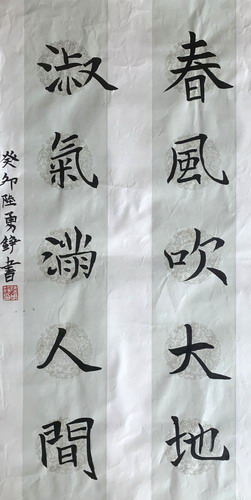 春風吹大地
淑氣滿人間
癸卯陸勇錚書